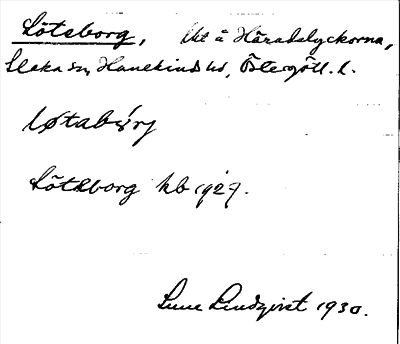 Lötsborg, Ut å Häradslyckorna,
Slaka sn, Hanekinds hd, Östergötl. l.
løtabǿrj
Lötsborg kb 1927.
Sune Lindqvist 1930.